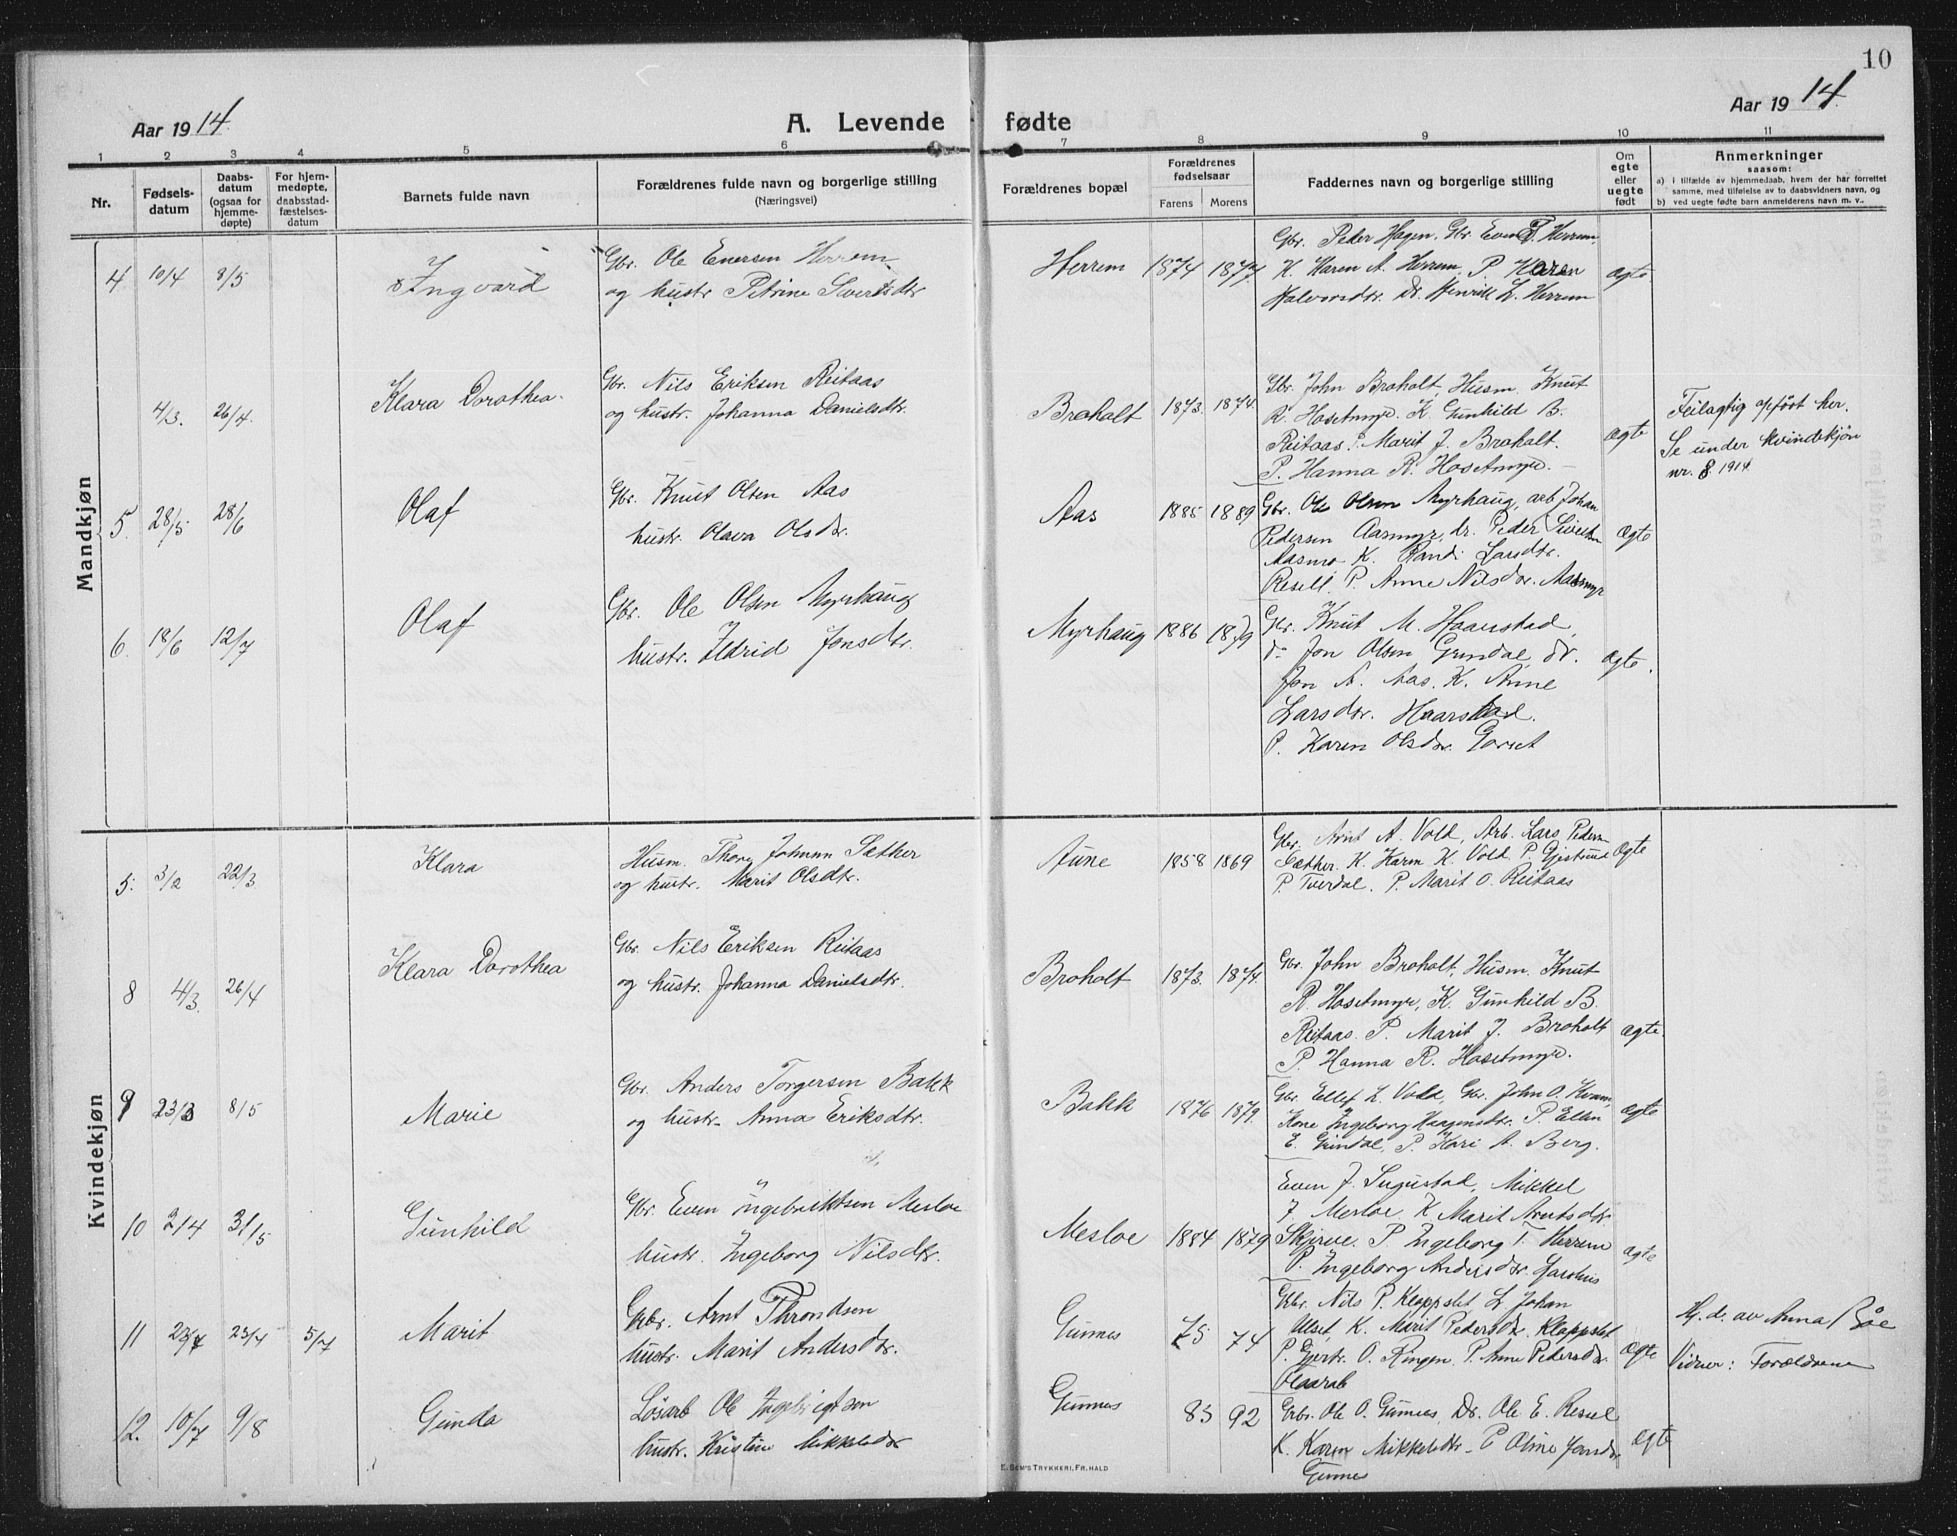 10
Aar 1914.
A. Levende fødte
Aar 1914
1 2 3 4 5 6 7 8 9 10 11
Nr.
Fødsels-
datum
Daabs-
datum
(ogsaa for
hjemme-
døpte)
For hjem-
medøpte,
daabsstad-
fæstelses-
datum
Barnets fulde navn
Forældrenes fulde navn og borgerlige stilling
(Næringsvei)
Forældrenes bopæl
Forældrenes
fødselsaar
Farens Morens
Faddernes navn og borgerlige stilling
Om
egte
eller
uegte
født
Anmerkninger
saasom:
a) i tilfælde av hjemmedaab, hvem der har forrettet
samme, med tilføielse av to daabsvidners navn, og
b) ved uegte fødte barn anmelderens navn m. v..
Mandkjøn
4 10/4 8/5 Ingvard
Gbr. Ole Enersen Herrem
og hustr Petrine Sivertsdtr
Herrem 1874 1877
Gbr. Peder Hagen, Gbr Even P. Herrem,
K. Karen A. Herrem, P. Karen
Halvorsdtr. Dr. Henrik L. Herrem
ægte
4/3. 26/4. Klara Dorothea.
Gbr. Nils Eriksen Reitaas
og hustr. Johanna Danielsdtr.
Broholt 1873. 1874.
Gbr. John Broholt, Husm. Knut
R. Hosetmyr. K. Gunhild B.
Reitaas. P. Marit J. Broholt.
P. Hanna R. Hosetmyr.
ægte
Feilagtig opført her.
Se under kvindekjøn
nr. 8. 1914
5. 28/5 28/6 Olaf
Gbr. Knut Olsen Aas
hustr. Olava Olsdr.
Aas 1885 1889
Gbr. Ole Olsen Myrhaug, arb. Johan
Pedersen Aasmyr, dr. Peder
Aasmo K. Randi Larsdtr.
Resell. P. Anne Nilsdr. Aasmyr
ægte
6. 18/6 12/7 Olaf
Gbr. Ole Olsen Myrhaug
hustr. Ildrid Jonsdtr.
Myrhaug 1886 1879
Gbr. Knut M. Haarstad,
do Jon Olsen Grindal, dr.
Jon A. Aas. K. Anne
Larsdtr. Haarstad.
P. Karen Olsdr.
ægte.
Kvindekjøn
5. 3/2 22/3 Klara
Husm. Thore Johnsen Sæther
og hustr. Marit Olsdtr.
Aune 1858 1869
Gbr. Arnt A. Vold, Arb. Lars Peders.
Sæther. K. Karen K. Vold. P. Gjertrud
P. Tverdal. P. Marit O. Reitaas
ægte
8 4/3. 26/4 Klara Dorothea
Gbr. Nils Eriksen Reitaas
og hustr. Johanna Danielsdtr.
Broholt 1873. 1874.
Gbr. John Broholt, Husm. Knut
R Hosetmyr, K. Gunhild B.
Reitaas. P. Marit J. Broholt
P. Hanna R. Hosetmyr.
ægte.
9 23/3 8/5 Marie
Gbr. Anders Torgersen Bakk
og hustr. Anna Eriksdtr.
Bakk 1876 1879.
Gbr. Ellef L Vold, Gbr. John O. Kvam,
Kone Ingeborg Haagensdtr. P. Ellen
E. Grindal, P. Kari A. Berg.
ægte
10 2/4 31/5 Gunhild
Gbr. Even Ingebriktsen Mesloe
hustr. Ingeborg Nilsdtr.
Mesloe 1884 1879
Even J. Sugustad, Mikkel
J Mesloe K Marit Arntsdtr
Skjerve. P Ingeborg T. Herrem
P. Ingeborg Andersdr.
ægte
11 23/4 23/4 5/7 Marit
Gbr. Arnt Throndsen
hustr. Marit Andersdr.
Gunnes 75 74
Gbr. Nils P. Kleppslet, L Johan
Alset, K. Marit Pedersdr. Kleppslet
P. Gjertr. O. Ringen, P. Anne Pedersdr.
ægte
Hj. d. av Anna Bøe
Vidner: Forældrene
12. 10/7 9/8 Gunda
Løsarb Ole Ingebrigtsen
hustr. Kristine Mikkelsdr
Gunnes 83 92
Gbr. Ole O. Gunnes, Dr. Ole E. Resell
K. Karen Mikkelsdtr. P Oline Jonsdr
Gunnes
ægte
E. SEM'S TRYKKERI, FR.HALD